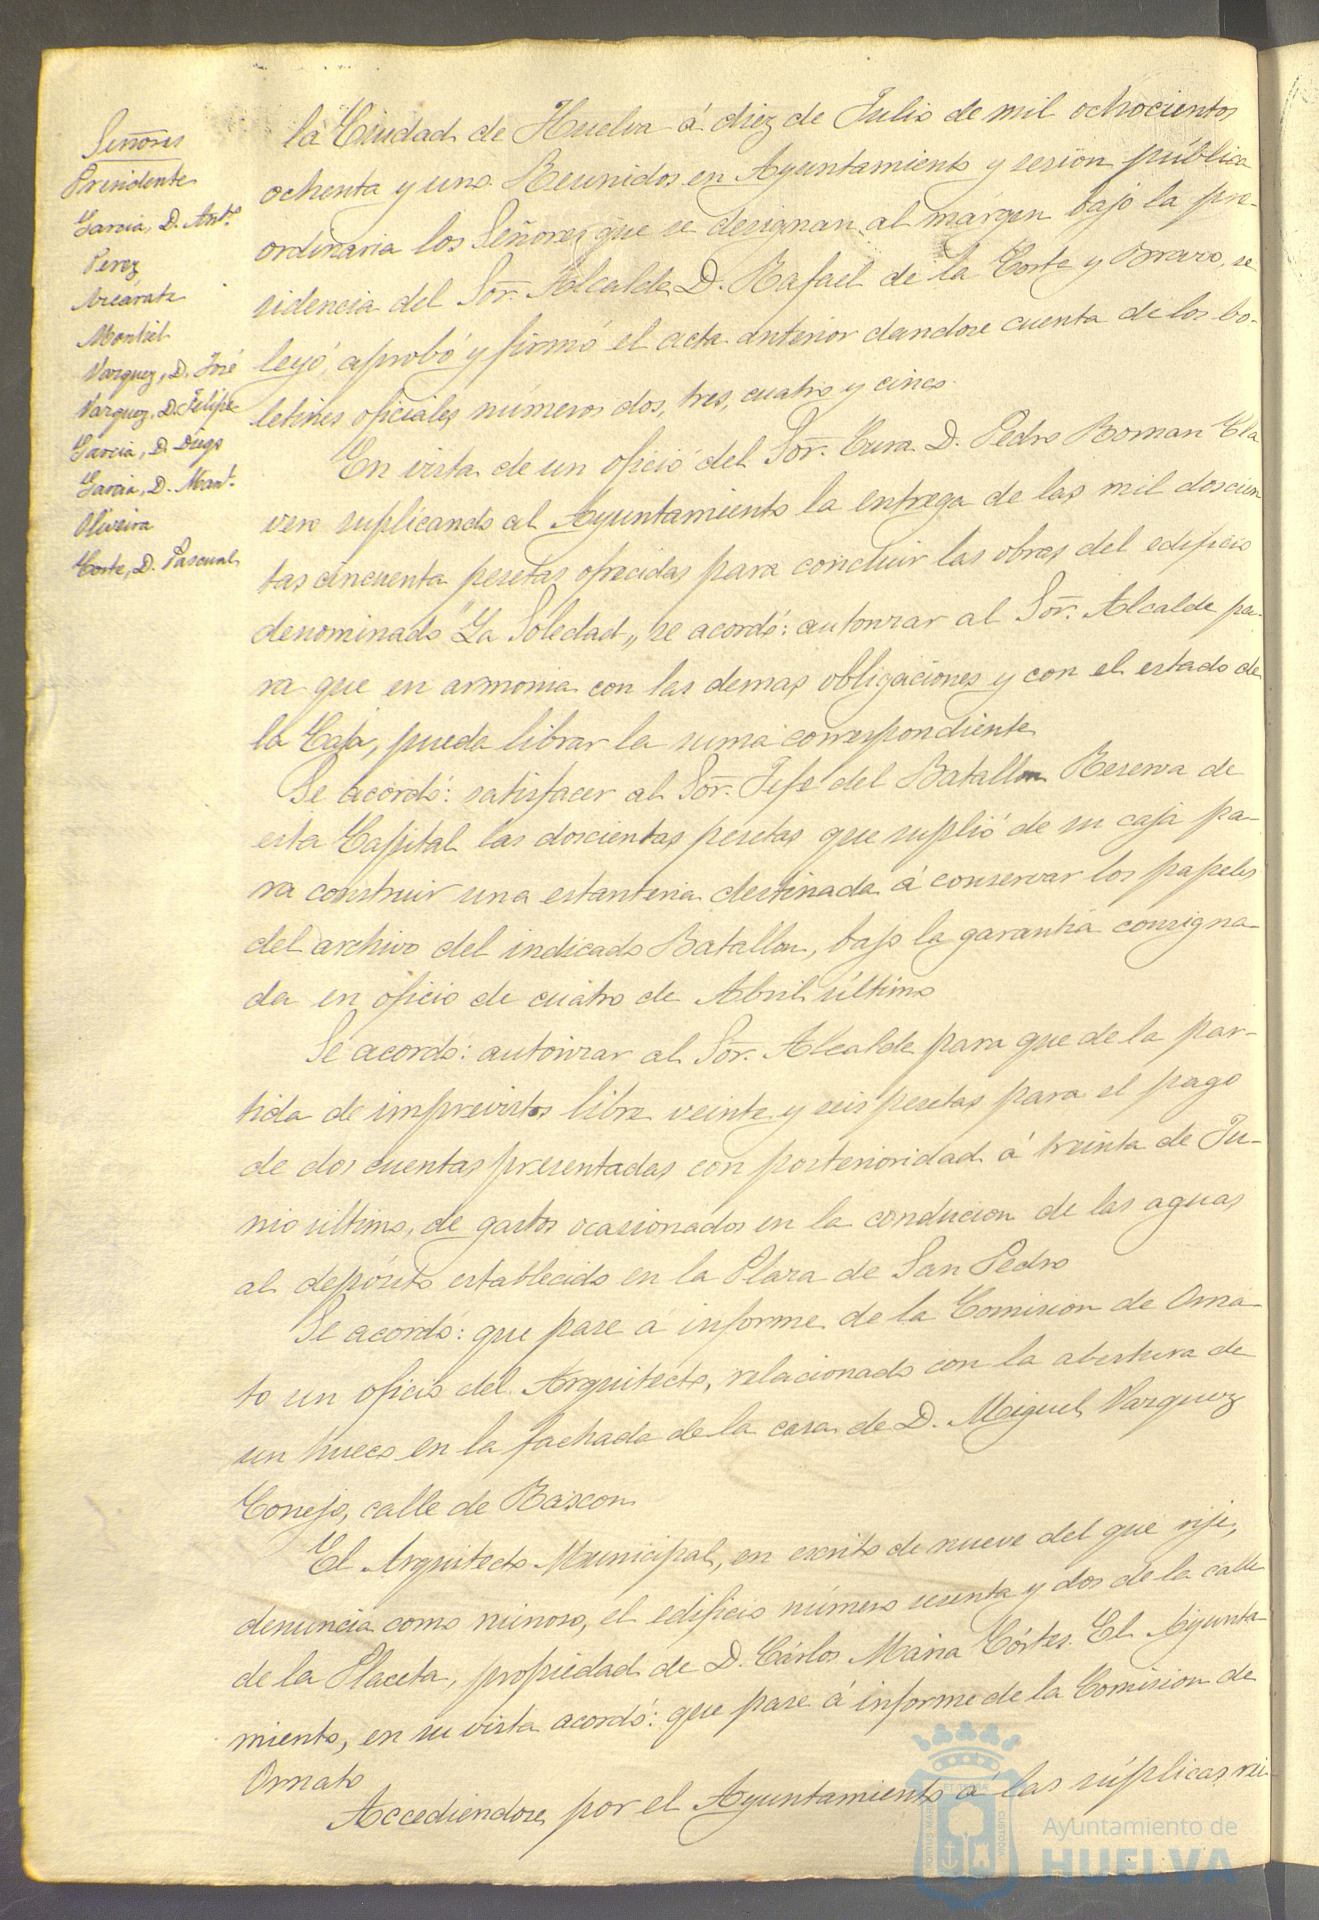 Señores
Presidente
Garcia, D. Antº
Perez
Azcárate
Montiel
Vazquez, D. José
Vazquez, D. Felipe
Garcia, D. Diego
Garcia, D. Manl.
Oliveira
Corte, D. Pascual
la Ciudad de Huelva á diez de Julio de mil ochocientos
ochenta y uno. Reunidos en Ayuntamiento y sesion pública
ordinaria los Señores que se designan al márgen bajo la pre-
sidencia del Sor. Alcalde D. Rafael de la Corte y Bravo, se
leyó, aprobó y firmó el acta anterior dandose cuenta de los bo-
letines oficiales números dos, tres, cuatro y cinco.
En vista de un oficio del Sor. Cura D. Pedro Roman Cla
vero suplicando al Ayuntamiento la entrega de las mil doscien
tas cincuenta pesetas ofrecidas para concluir las obras del edificio
denominado "La Soledad„ se acordó: autorizar al Sor. Alcalde pa-
ra que en armonia con las demas obligaciones y con el estado de
la Caja, pueda librar la suma correspondiente
Se acordó: satisfacer al Sor. Jefe del Batallon Reserva de
esta Capital las doscientas pesetas que suplió de su caja pa-
ra construir una estanteria destinada á conservar los papeles
del archivo del indicado Batallon, bajo la garantia consigna-
da en oficio de cuatro de Abril último
Se acordó: autorizar al Sor. Alcalde para que de la par-
tida de imprevistos libre veinte y seis pesetas para el pago
de dos cuentas presentadas con posterioridad á treinta de Ju-
nio último, de gastos ocasionados en la conducion de las aguas
al depósito establecido en la Plaza de San Pedro
Se acordó: que pase á informe de la Comision de Orna-
to un oficio del Arquitecto, relacionado con la abertura de
un hueco en la fachada de la casa de D. Miguel Vazquez
Conejo, calle de Rascon
El Arquitecto Municipal, en escrito de nueve del que rije,
denuncia como ruinoso, el edificio número sesenta y dos de la calle
de la Placeta, propiedad de D. Cárlos Maria Córtes. El Ayunta-
miento, en su vista acordó: que pase á informe de la Comision de
Ornato
Accediendose por el Ayuntamiento á las súplicas rei-
Ayuntamiento de
HUELVA